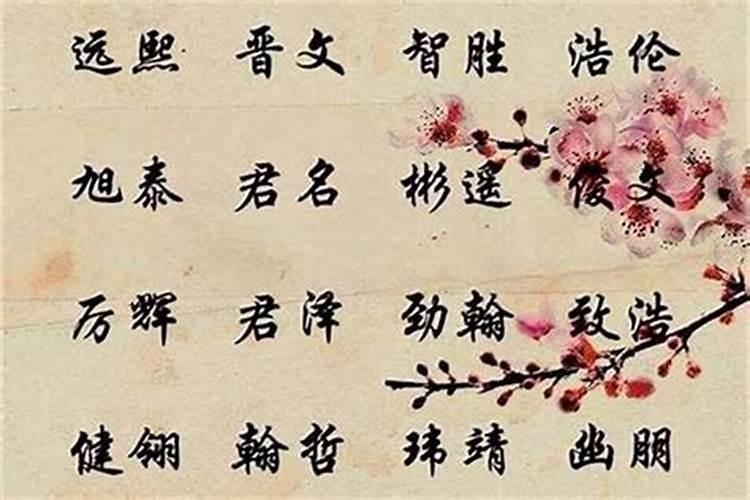 远熙 晋文 智胜 浩伦
旭泰 君名 彬遥 俊文
厉辉 君泽 劲翰 致浩
健翎 翰哲 玮靖 幽朋